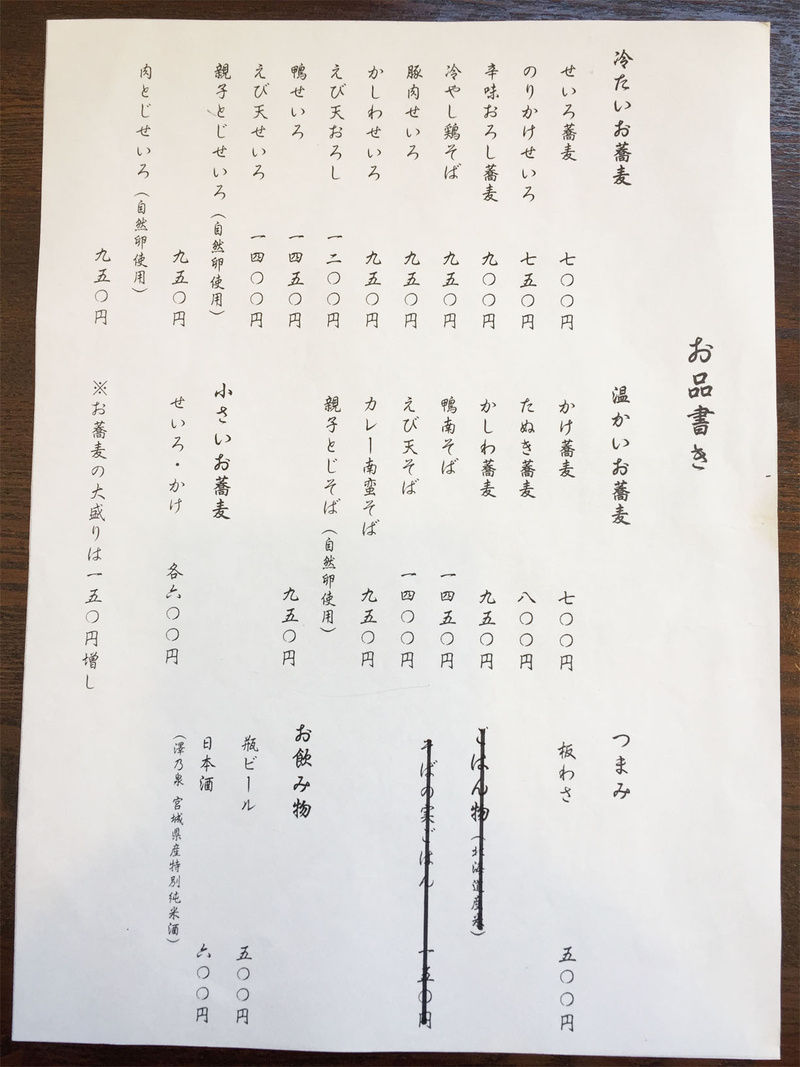 お品書き
冷たいお蕎麦
せいろ蕎麦 七〇〇円
のりかけせいろ 七五〇円
辛味おろし蕎麦 九〇〇円
冷やし鶏そば 九五〇円
豚肉せいろ 九五〇円
かしわせいろ 九五〇円
えび天おろし 一二〇〇円
鴨せいろ 一四五〇円
えび天せいろ 一四〇〇円
親子とじせいろ（自然卵使用）
九五〇円
肉とじせいろ（自然卵使用）
九五〇円
温かいお蕎麦
かけ蕎麦 七〇〇円
たぬき蕎麦 八〇〇円
かしわ蕎麦 九五〇円
鴨南そば 一四五〇円
えび天そば 一四〇〇円
カレー南蛮そば 九五〇円
親子とじそば（自然卵使用）
九五〇円
小さいお蕎麦
せいろ・かけ 各六〇〇円
※お蕎麦の大盛りは一五〇円増し
つまみ
板わさ 五〇〇円
ごはん物（北海道産米）
そばの実ごはん 一五〇円
お飲み物
瓶ビール 五〇〇円
日本酒 六〇〇円
（澤乃泉 宮城県産特別純米酒）